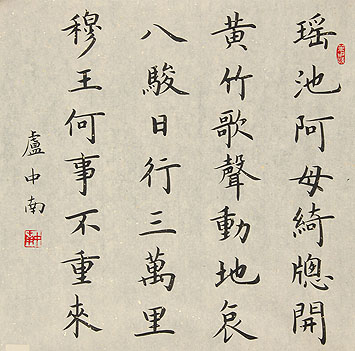 瑶池阿母綺窻開
黄竹歌聲動地哀
八駿日行三萬里
穆王何事不重來
盧中南